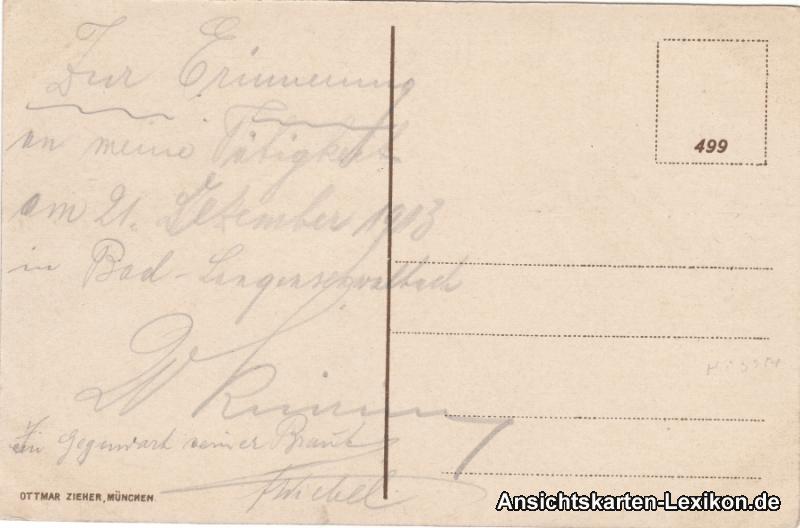 Zur Erinnerung
an meine Tätigkeit
am 21. Dezember 1913
in Bad-Langenschwalbach
W
In Gegenwart seiner Braut
499
OTTMAR ZIEHER, MÜNCHEN.
Ansichtskarten-Lexikon.de